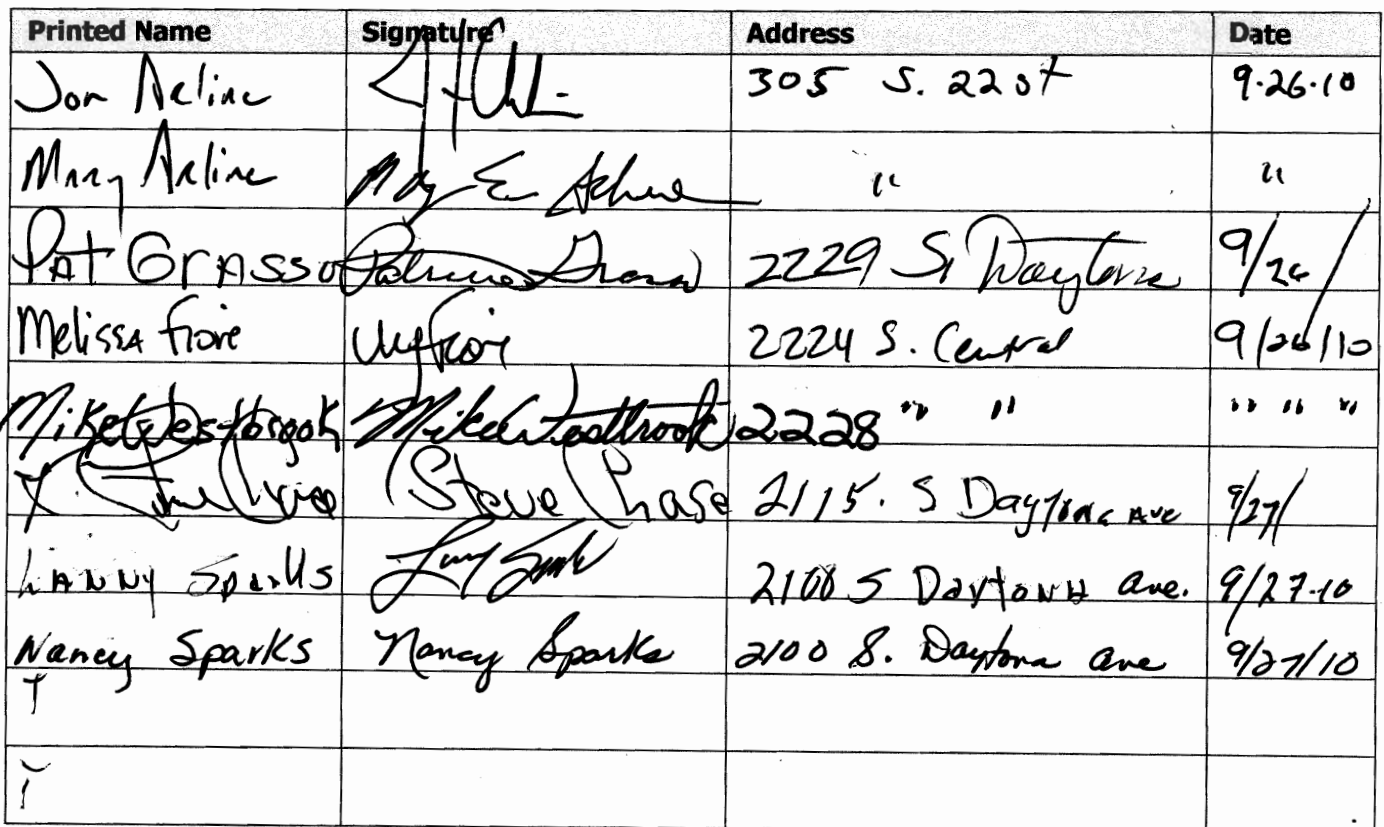 Printed Name Signature Address Date
Jon Arline 305 S. 22 st 9.26.10
Mary Arline Mary E Arline " "
PAT GRASSO Patricia Grasso 2229 S. Daytona 9/26/
Melissa Fiore 2224 S. Central 9/26/10
Mike Westbrook Mike Westbrook 2228 " " " " "
Steve Chase 2115. S Daytona Ave 9/27/
LANNY Sparks 2100 S Daytona ave. 9/27.10
Nancy Sparks Nancy Sparks 2100 S. Daytona ave 9/27/10